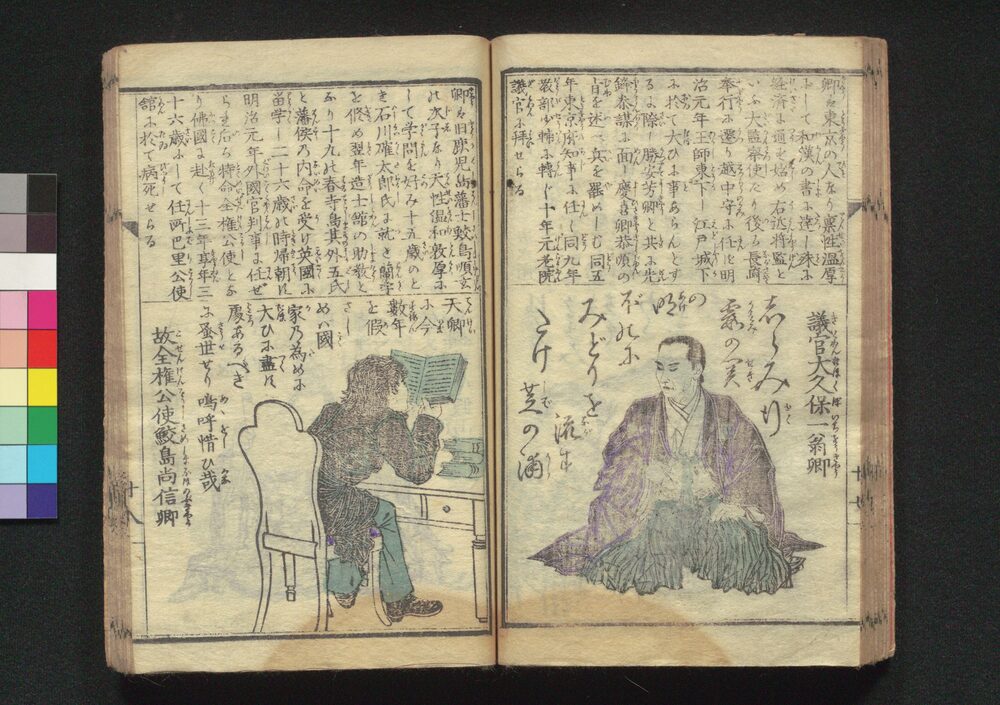 卿ハ東京の人なり稟性温厚
にして和漢の書に達し殊に
経済に通ず始め右近将監と
いふ大監察使たり後ち長崎
奉行に遷り越中守に任ず明
治元年王師東下し江戸城下
に於て大ひに事あらんとす
るに際し勝安芳卿と共に先
鋒参謀に面し慶喜卿恭順の
旨を述べ兵を罷めしむ同五
年東京府知事に任じ同九年
教部少輔に轉じ十年元老院
議官に拝せらる
議官大久保一翁卿
しらみ行
霞の実
の
明ぼのに
みどりを
流す
たけ芝の浦
卿ハ旧鹿児島藩士鮫島順玄
の次子なり天性温和敦厚に
して学問を好み十五歳のと
き石川確太郎氏に就き蘭学
を修め翌年造士館の助教と
なり十九の春寺島其外五氏
と藩侯の内命を受け英國に
留学し二十六歳の時帰朝し
明治元年外國官判事に任ぜ
らる后ち特命全権公使とな
り佛國に赴く十三年享年三
十六歳にして任所巴里公使
舘に於て病死せらる
天卿
に今
數年
を假
さし
めバ國
家の為めに
大ひに盡す
處あるべき
に蚤世せり嗚呼惜ひ哉
故全権公使鮫島尚信卿
十八